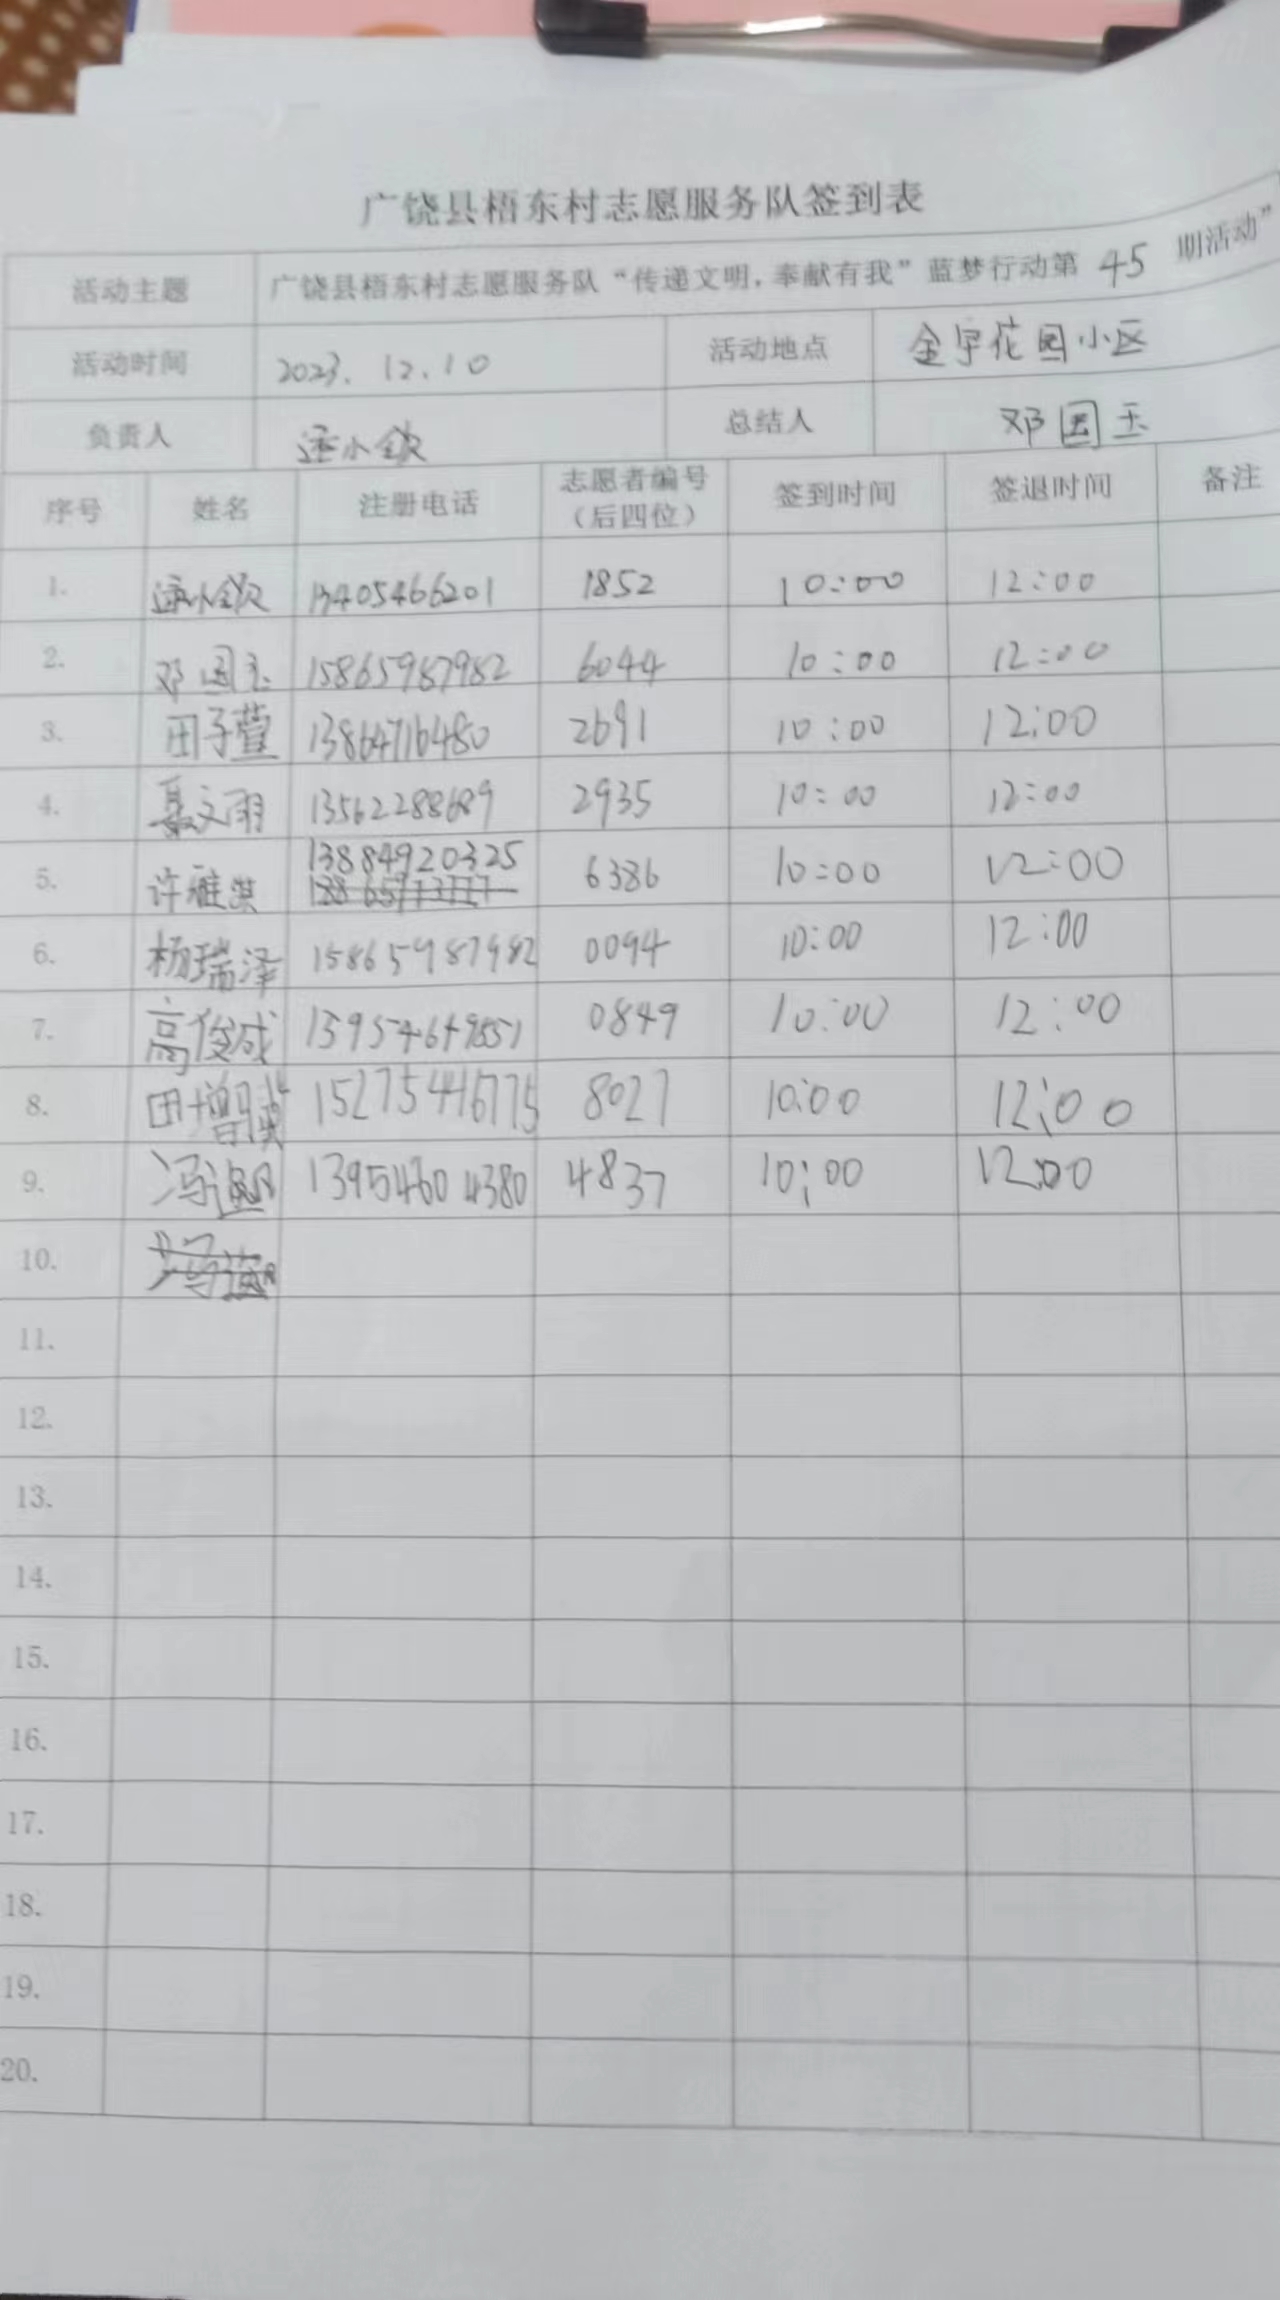 广饶县梧东村志愿服务队签到表
活动主题 广饶县梧东村志愿服务队“传递文明，奉献有我”蓝梦行动第 45 期活动”
活动时间 2023. 12. 10 活动地点 金宇花园小区
负责人 逯小钦 总结人 邓国玉
序号 姓名 注册电话 志愿者编号（后四位） 签到时间 签退时间 备注
1. 逯小钦 13405466201 1852 10:00 12:00
2. 邓国玉 15865987982 6044 10:00 12:00
3. 田子萱 13864716480 2691 10:00 12:00
4. 聂文雨 13562288689 2935 10:00 12:00
5. 许雅淇 13884920325 6386 10:00 12:00
6. 杨瑞泽 15865987982 0094 10:00 12:00
7. 高俊成 0849 10:00 12:00
8. 15275446775 8027 10:00 12:00
9. 13954604380 4837 10:00 12:00
10.
11.
12.
13.
14.
15.
16.
17.
18.
19.
20.